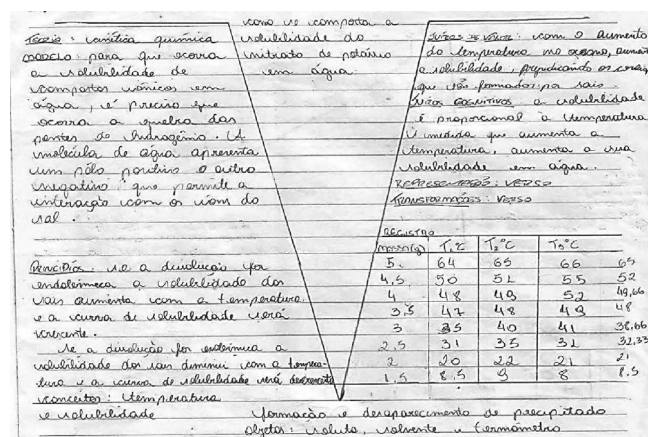 como se comporta a
solubilidade do
nitrato de potássio
em água.
Teoria: cinética química
MODELO: para que ocorra
a solubilidade de
compostos iônicos em
água, é preciso que
ocorra a quebra das
pontes de hidrogênio. A
molécula de água apresenta
um pólo positivo e outro
negativo que permite a
interação com os íons do
sal.
PRINCÍPIOS: se a dissolução for
endotérmica a solubilidade dos
sais aumenta com a temperatura
e a curva de solubilidade será
crescente.
Se a dissolução for exotérmica a
solubilidade dos sais diminui com a tempera-
tura e a curva de solubilidade será decrescente
conceitos: temperatura
e solubilidade
JUÍZOS DE VALOR: com o aumento
da temperatura no oceano, aumenta
a solubilidade, prejudicando os corais,
que são formados por sais.
JUÍZOS COGNITIVOS: a solubilidade
é proporcional a temperatura
à medida que aumenta a
temperatura, aumenta a sua
solubilidade em água.
REPRESENTAÇÕES: VERSO
TRANSFORMAÇÕES: VERSO
REGISTRO
massa(g) T₁°C T₂°C T₃°C
5 64 65 66 65
4,5 50 51 55 52
4 48 49 52 49,66
3,5 47 48 49 48
3 35 40 41 38,66
2,5 31 35 31 32,33
2 20 22 21 21
1,5 8,5 9 8 8,5
formação e desaparecimento de precipitado
objetos: soluto, solvente e termômetro